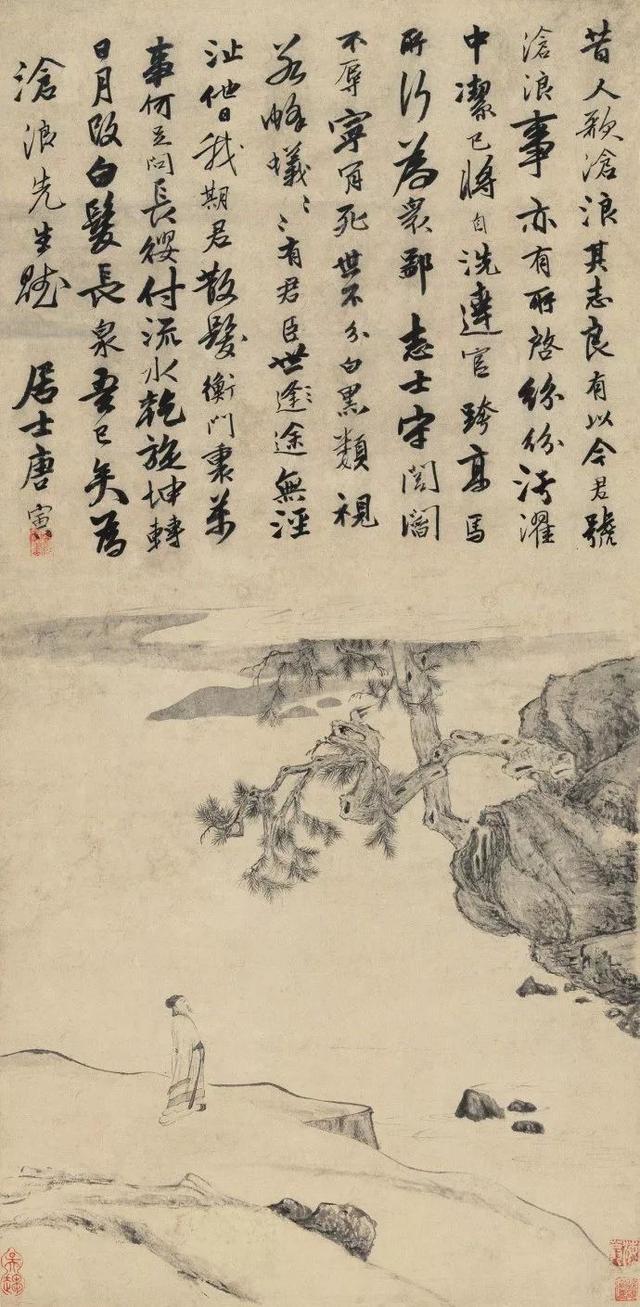 昔人歌滄浪其志良有以今君號
滄浪事亦有所啓紛紛汚濯
中潔已將自洗達官跨高馬
所行為衆鄙志士守閭閻
不辱寧死世不分白黑類視
若蜂蟻有君臣世途無涇
沚他日我期君散髮衡門裏萬
事何足問長纓付流水乾旋坤轉
日月改白髮長泉吾已矣為
滄浪先生賦 居士唐寅